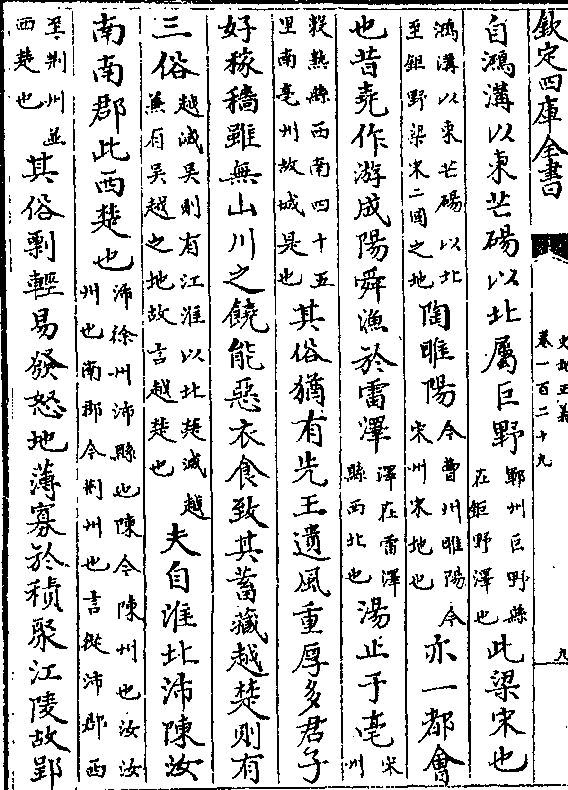 欽定四庫全書
史記正義
卷一百二十九
九
自鴻溝以東芒碭以北屬巨野鄆州巨野縣在鉅野澤也此梁宋也
鴻溝以東芒碭以北至鉅野梁宋二國之地陶睢陽今曹州睢陽今宋州宋地也亦一都會
也昔堯作游成陽舜漁於雷澤澤在雷澤縣西北也湯止于亳宋州
穀熟縣西南四十五里南亳州故城是也其俗猶有先王遺風重厚多君子
好稼穡雖無山川之饒能惡衣食致其蓄藏越楚則有
三俗越滅吳則有江淮以北楚滅越兼有吳越之地故言越楚也夫自淮北沛陳汝
南南郡此西楚也沛徐州沛縣也陳今陳州也汝汝州也南郡今荆州也言從沛郡西
至荆州並西楚也其俗剽輕易發怒地薄寡於積聚江陵故郢